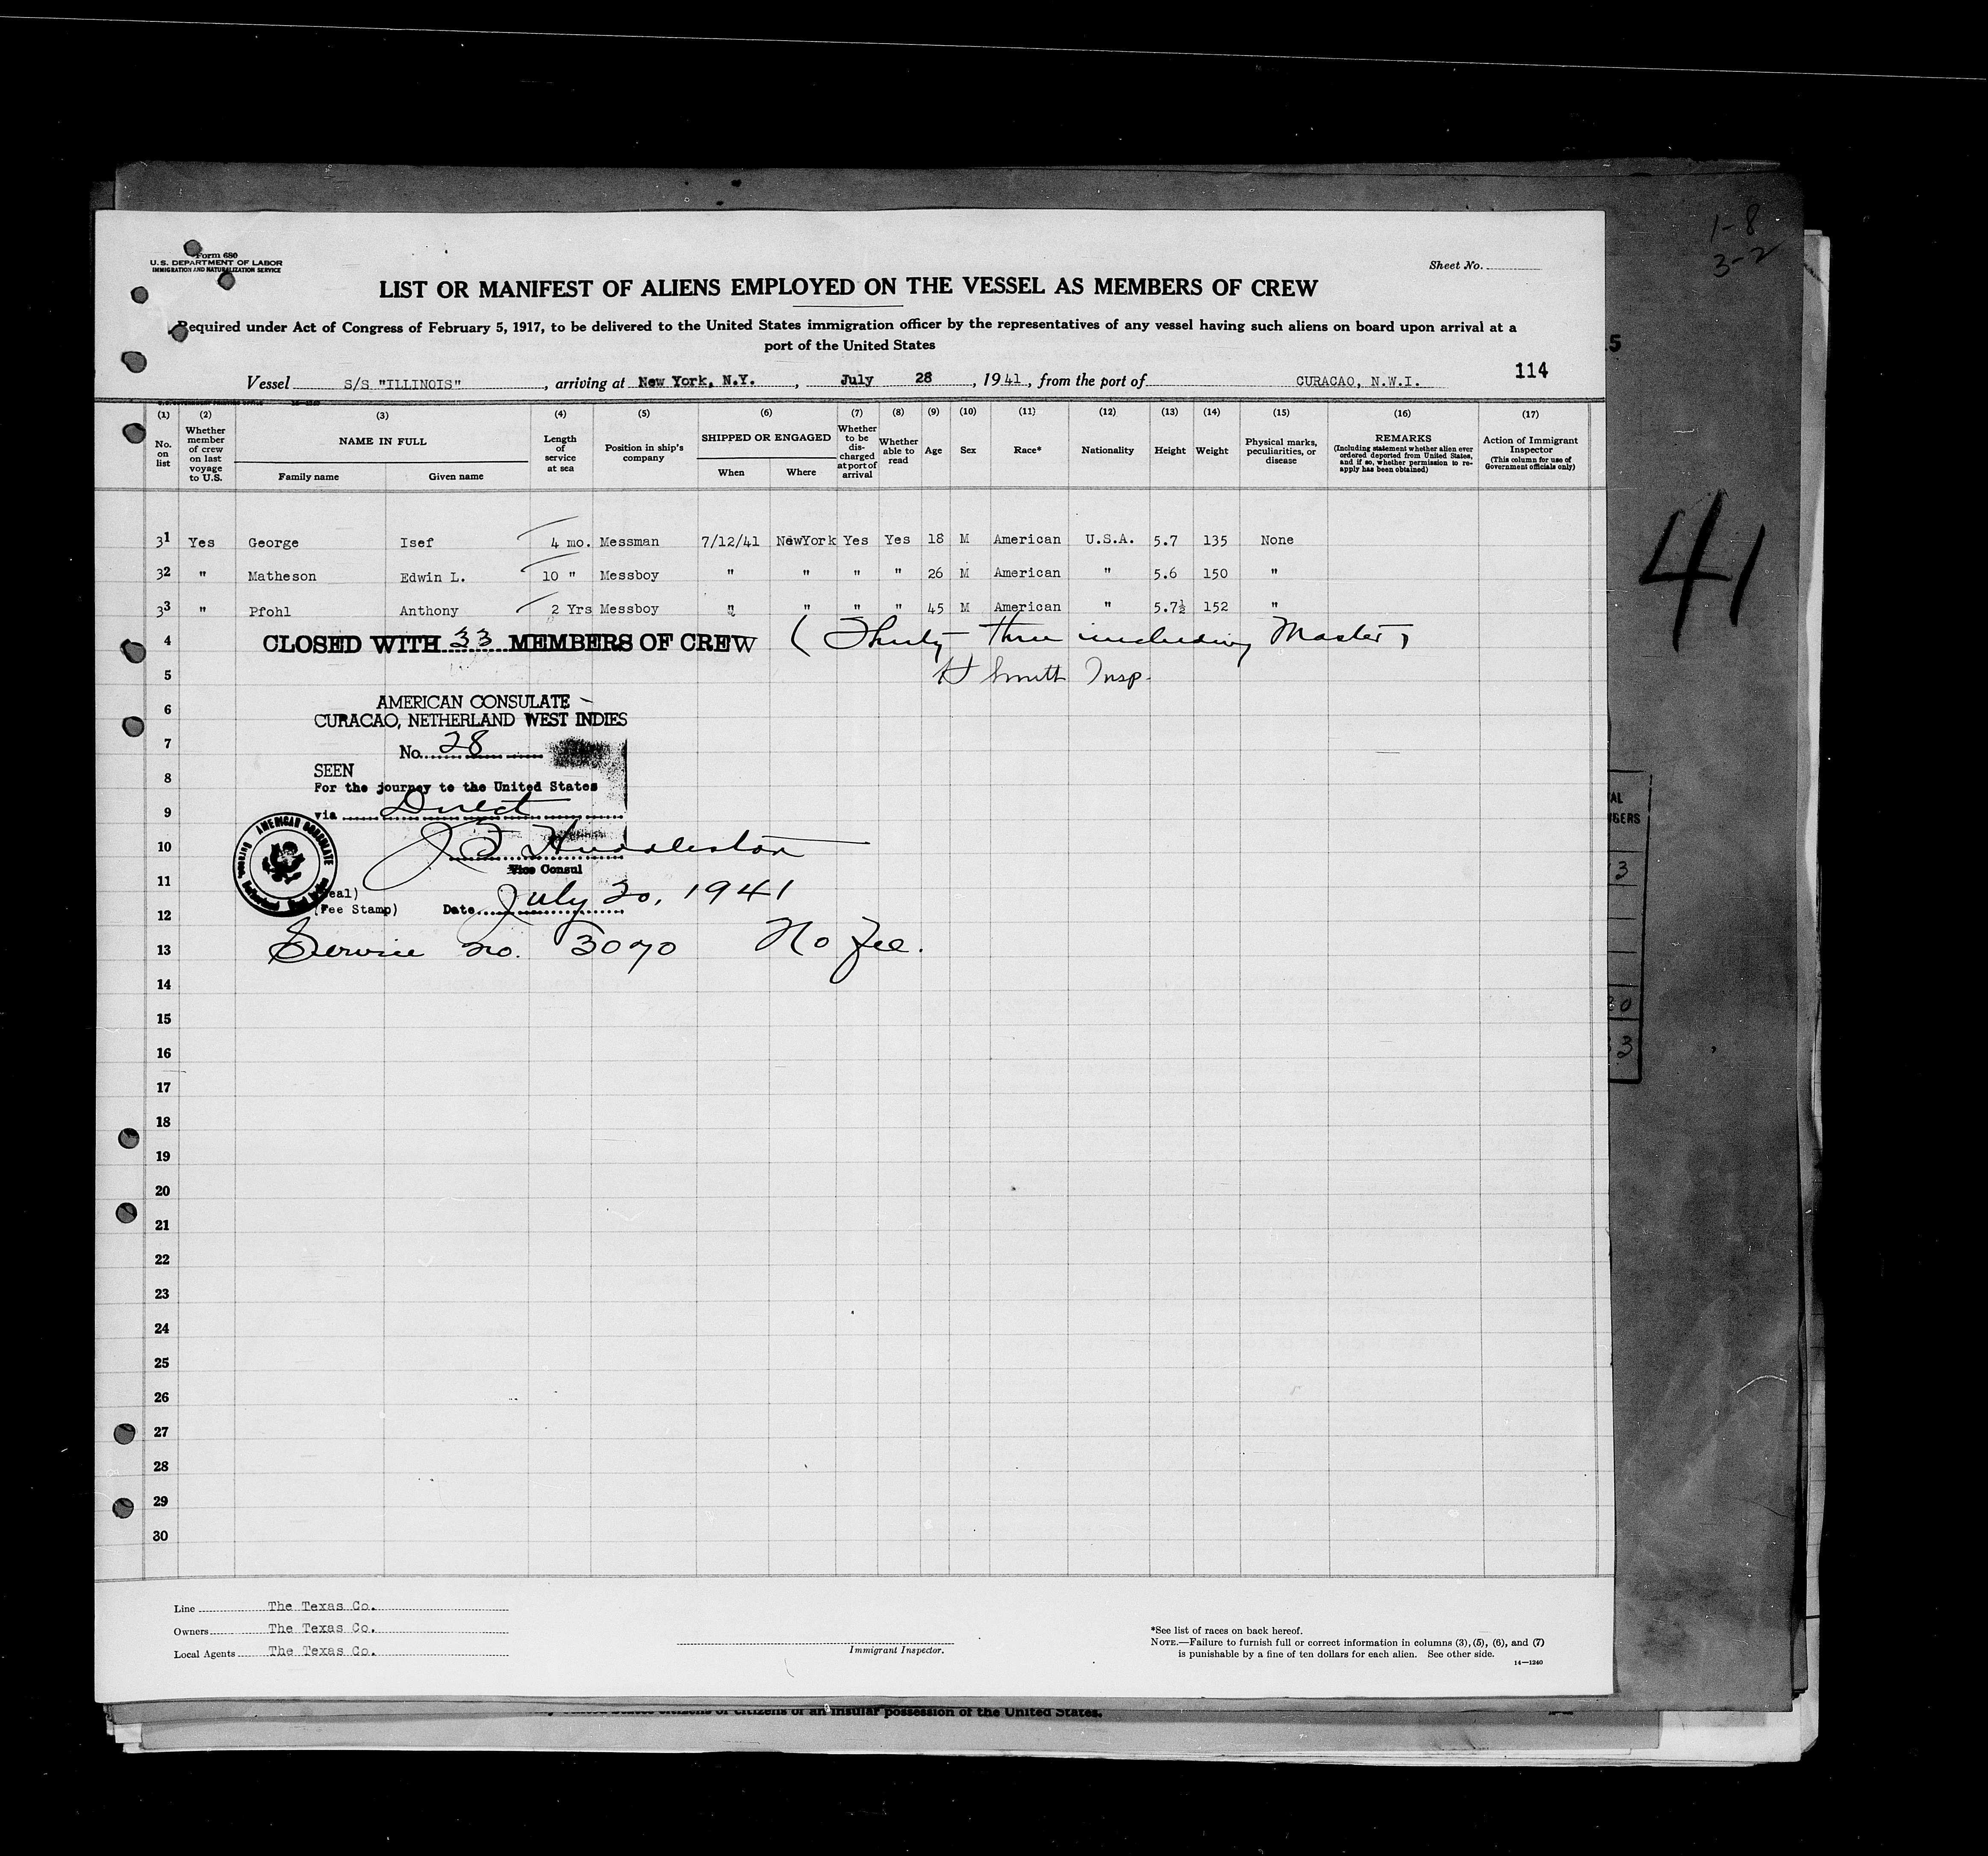 1-8
3-2
Form 680
U.S. DEPARTMENT OF LABOR
IMMIGRATION AND NATURALIZATION SERVICE
Sheet No.
LIST OR MANIFEST OF ALIENS EMPLOYED ON THE VESSEL AS MEMBERS OF CREW
Required under Act of Congress of February 5, 1917, to be delivered to the United States immigration officer by the representatives of any vessel having such aliens on board upon arrival at a
port of the United States
114
Vessel S/S "ILLINOIS", arriving at New York, N.Y., July 28, 1941, from the port of CURACAO, N.W.I.
(1) (2) (3) (4) (5) (6) (7) (8) (9) (10) (11) (12) (13) (14) (15) (16) (17)
No. on list
Whether member of crew on last voyage to U.S.
NAME IN FULL
Family name Given name
Length of service at sea
Position in ship's company
SHIPPED OR ENGAGED
When Where
Whether to be discharged at port of arrival
Whether able to read
Age
Sex
Race*
Nationality
Height
Weight
Physical marks, peculiarities, or disease
REMARKS
(Including statement whether alien ever ordered deported from United States, and if so, whether permission to re-apply has been obtained)
Action of Immigrant Inspector
(This column for use of Government officials only)
31 Yes George Isef 4 mo. Messman 7/12/41 NewYork Yes Yes 18 M American U.S.A. 5.7 135 None
32 " Matheson Edwin L. 10 " Messboy " " " " 26 M American " 5.6 150 "
33 " Pfohl Anthony 2 Yrs Messboy " " " " 45 M American " 5.7½ 152 "
4 CLOSED WITH 33 MEMBERS OF CREW (Thirty-three including Master)
5 H Smith Insp.
AMERICAN CONSULATE
6 CURACAO, NETHERLAND WEST INDIES
7 No. 28
SEEN
8 For the journey to the United States
9 via Direct
AMERICAN CONSULATE
10 J F Huddleston
Vice Consul
11 (Seal)
12 (Fee Stamp) Date July 20, 1941
13 Service no. 3070 No fee.
14
15
16
17
18
19
20
21
22
23
24
25
26
27
28
29
30
41
Line The Texas Co.
Owners The Texas Co.
Local Agents The Texas Co.
Immigrant Inspector.
*See list of races on back hereof.
NOTE.—Failure to furnish full or correct information in columns (3), (5), (6), and (7)
is punishable by a fine of ten dollars for each alien. See other side.
14—1240
citizens or citizens of an insular possession of the United States.